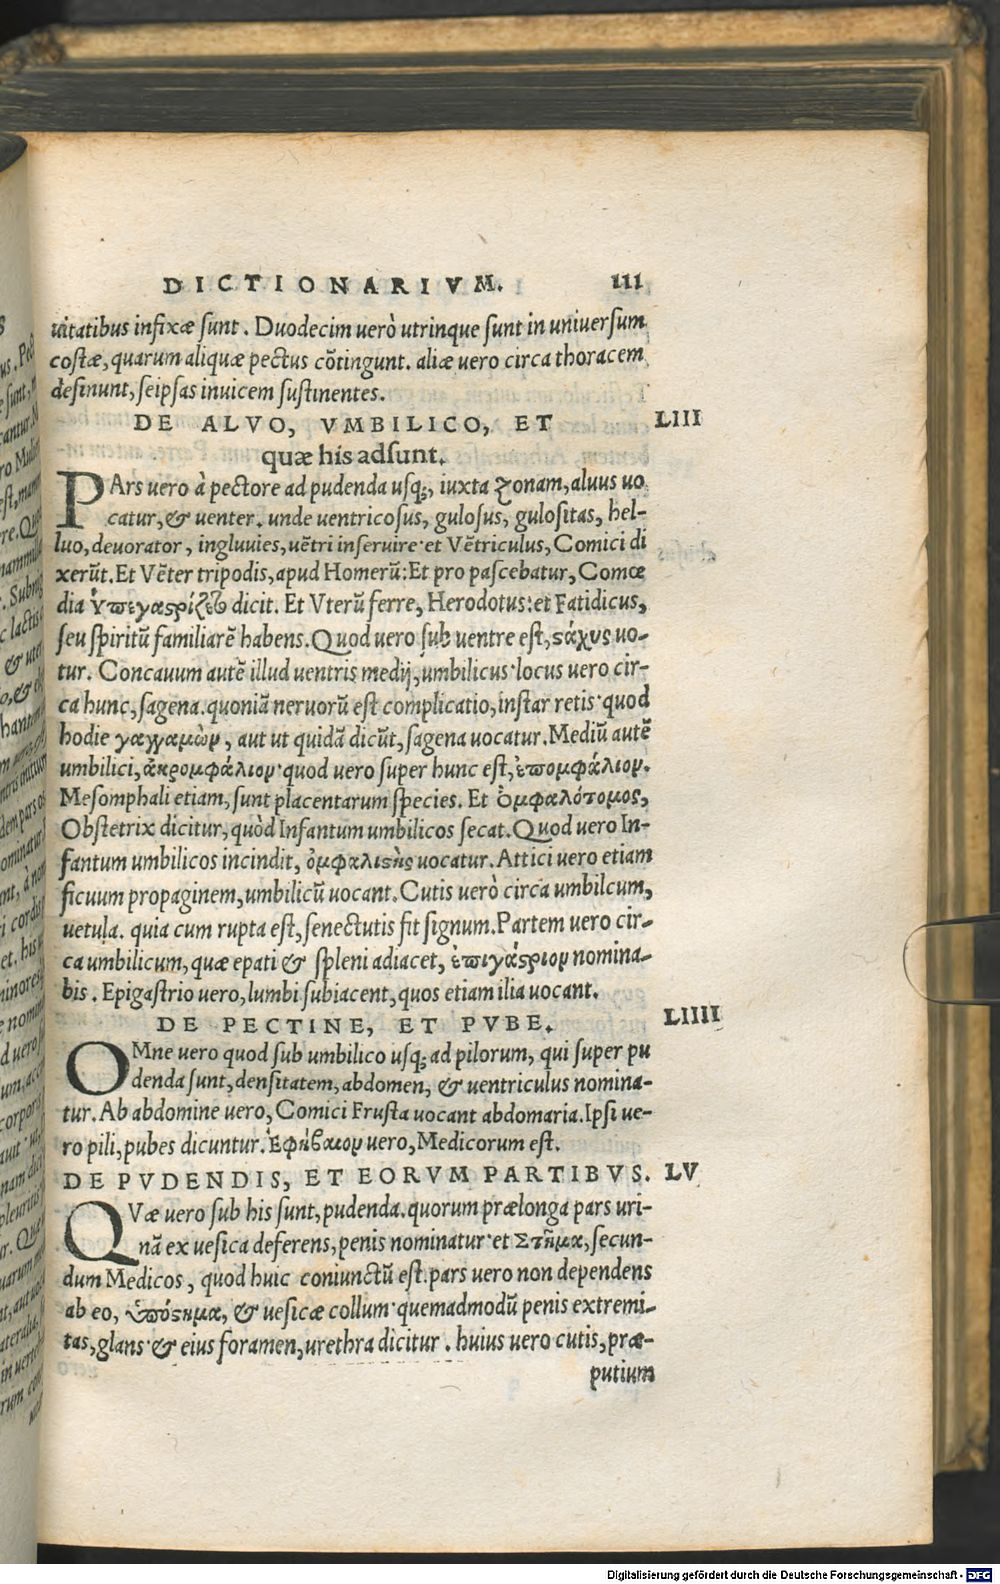 DICTIONARIVM. 111
uitatibus infixæ sunt. Duodecim uerò utrinque sunt in uniuersum
costæ, quarum aliquæ pectus cõtingunt. aliæ uero circa thoracem
desinunt, seipsas inuicem sustinentes.
DE ALVO, VMBILICO, ET LIII
quæ his adsunt.
PArs uero à pectore ad pudenda usq;, iuxta zonam, aluus uo
catur, & uenter. unde uentricosus, gulosus, gulositas, hel-
luo, deuorator, ingluuies, uẽtri inseruire·et Vẽtriculus, Comici di
xerũt. Et Vẽter tripodis, apud Homerũ: Et pro pascebatur, Comœ
dia ὑπεγαστρίζετο dicit. Et Vterũ ferre, Herodotus: et Fatidicus,
seu spiritũ familiarẽ habens. Quod uero sub uentre est, στάχυς uo-
tur. Concauum autẽ illud uentris medij, umbilicus·locus uero cir-
ca hunc, sagena. quoniã neruorũ est complicatio, instar retis·quod
hodie γαγγαμὼν, aut ut quidã dicũt, sagena uocatur. Mediũ autẽ
umbilici, ἀκρομφάλιον·quod uero super hunc est, ἐπομφάλιον.
Mesomphali etiam, sunt placentarum species. Et ὀμφαλότομος,
Obstetrix dicitur, quòd Infantum umbilicos secat. Quod uero In-
fantum umbilicos incindit, ὀμφαλιστὴς uocatur. Attici uero etiam
ficuum propaginem, umbilicũ uocant. Cutis uerò circa umbilcum,
uetula. quia cum rupta est, senectutis fit signum. Partem uero cir-
ca umbilicum, quæ epati & spleni adiacet, ἐπιγάστριον nomina-
bis. Epigastrio uero, lumbi subiacent, quos etiam ilia uocant.
DE PECTINE, ET PVBE. LIIII
OMne uero quod sub umbilico usq; ad pilorum, qui super pu
denda sunt, densitatem, abdomen, & uentriculus nomina-
tur. Ab abdomine uero, Comici Frusta uocant abdomaria. Ipsi ue-
ro pili, pubes dicuntur. Ἐφήβαιον uero, Medicorum est.
DE PVDENDIS, ET EORVM PARTIBVS. LV
QVæ uero sub his sunt, pudenda. quorum prælonga pars uri-
nã ex uesica deferens, penis nominatur·et Στῆμα, secun-
dum Medicos, quod huic coniunctũ est. pars uero non dependens
ab eo, ὑπόστημα, & uesicæ collum·quemadmodũ penis extremi-
tas, glans·& eius foramen, urethra dicitur. huius uero cutis, præ-
putium
Digitalisierung gefördert durch die Deutsche Forschungsgemeinschaft - DFG